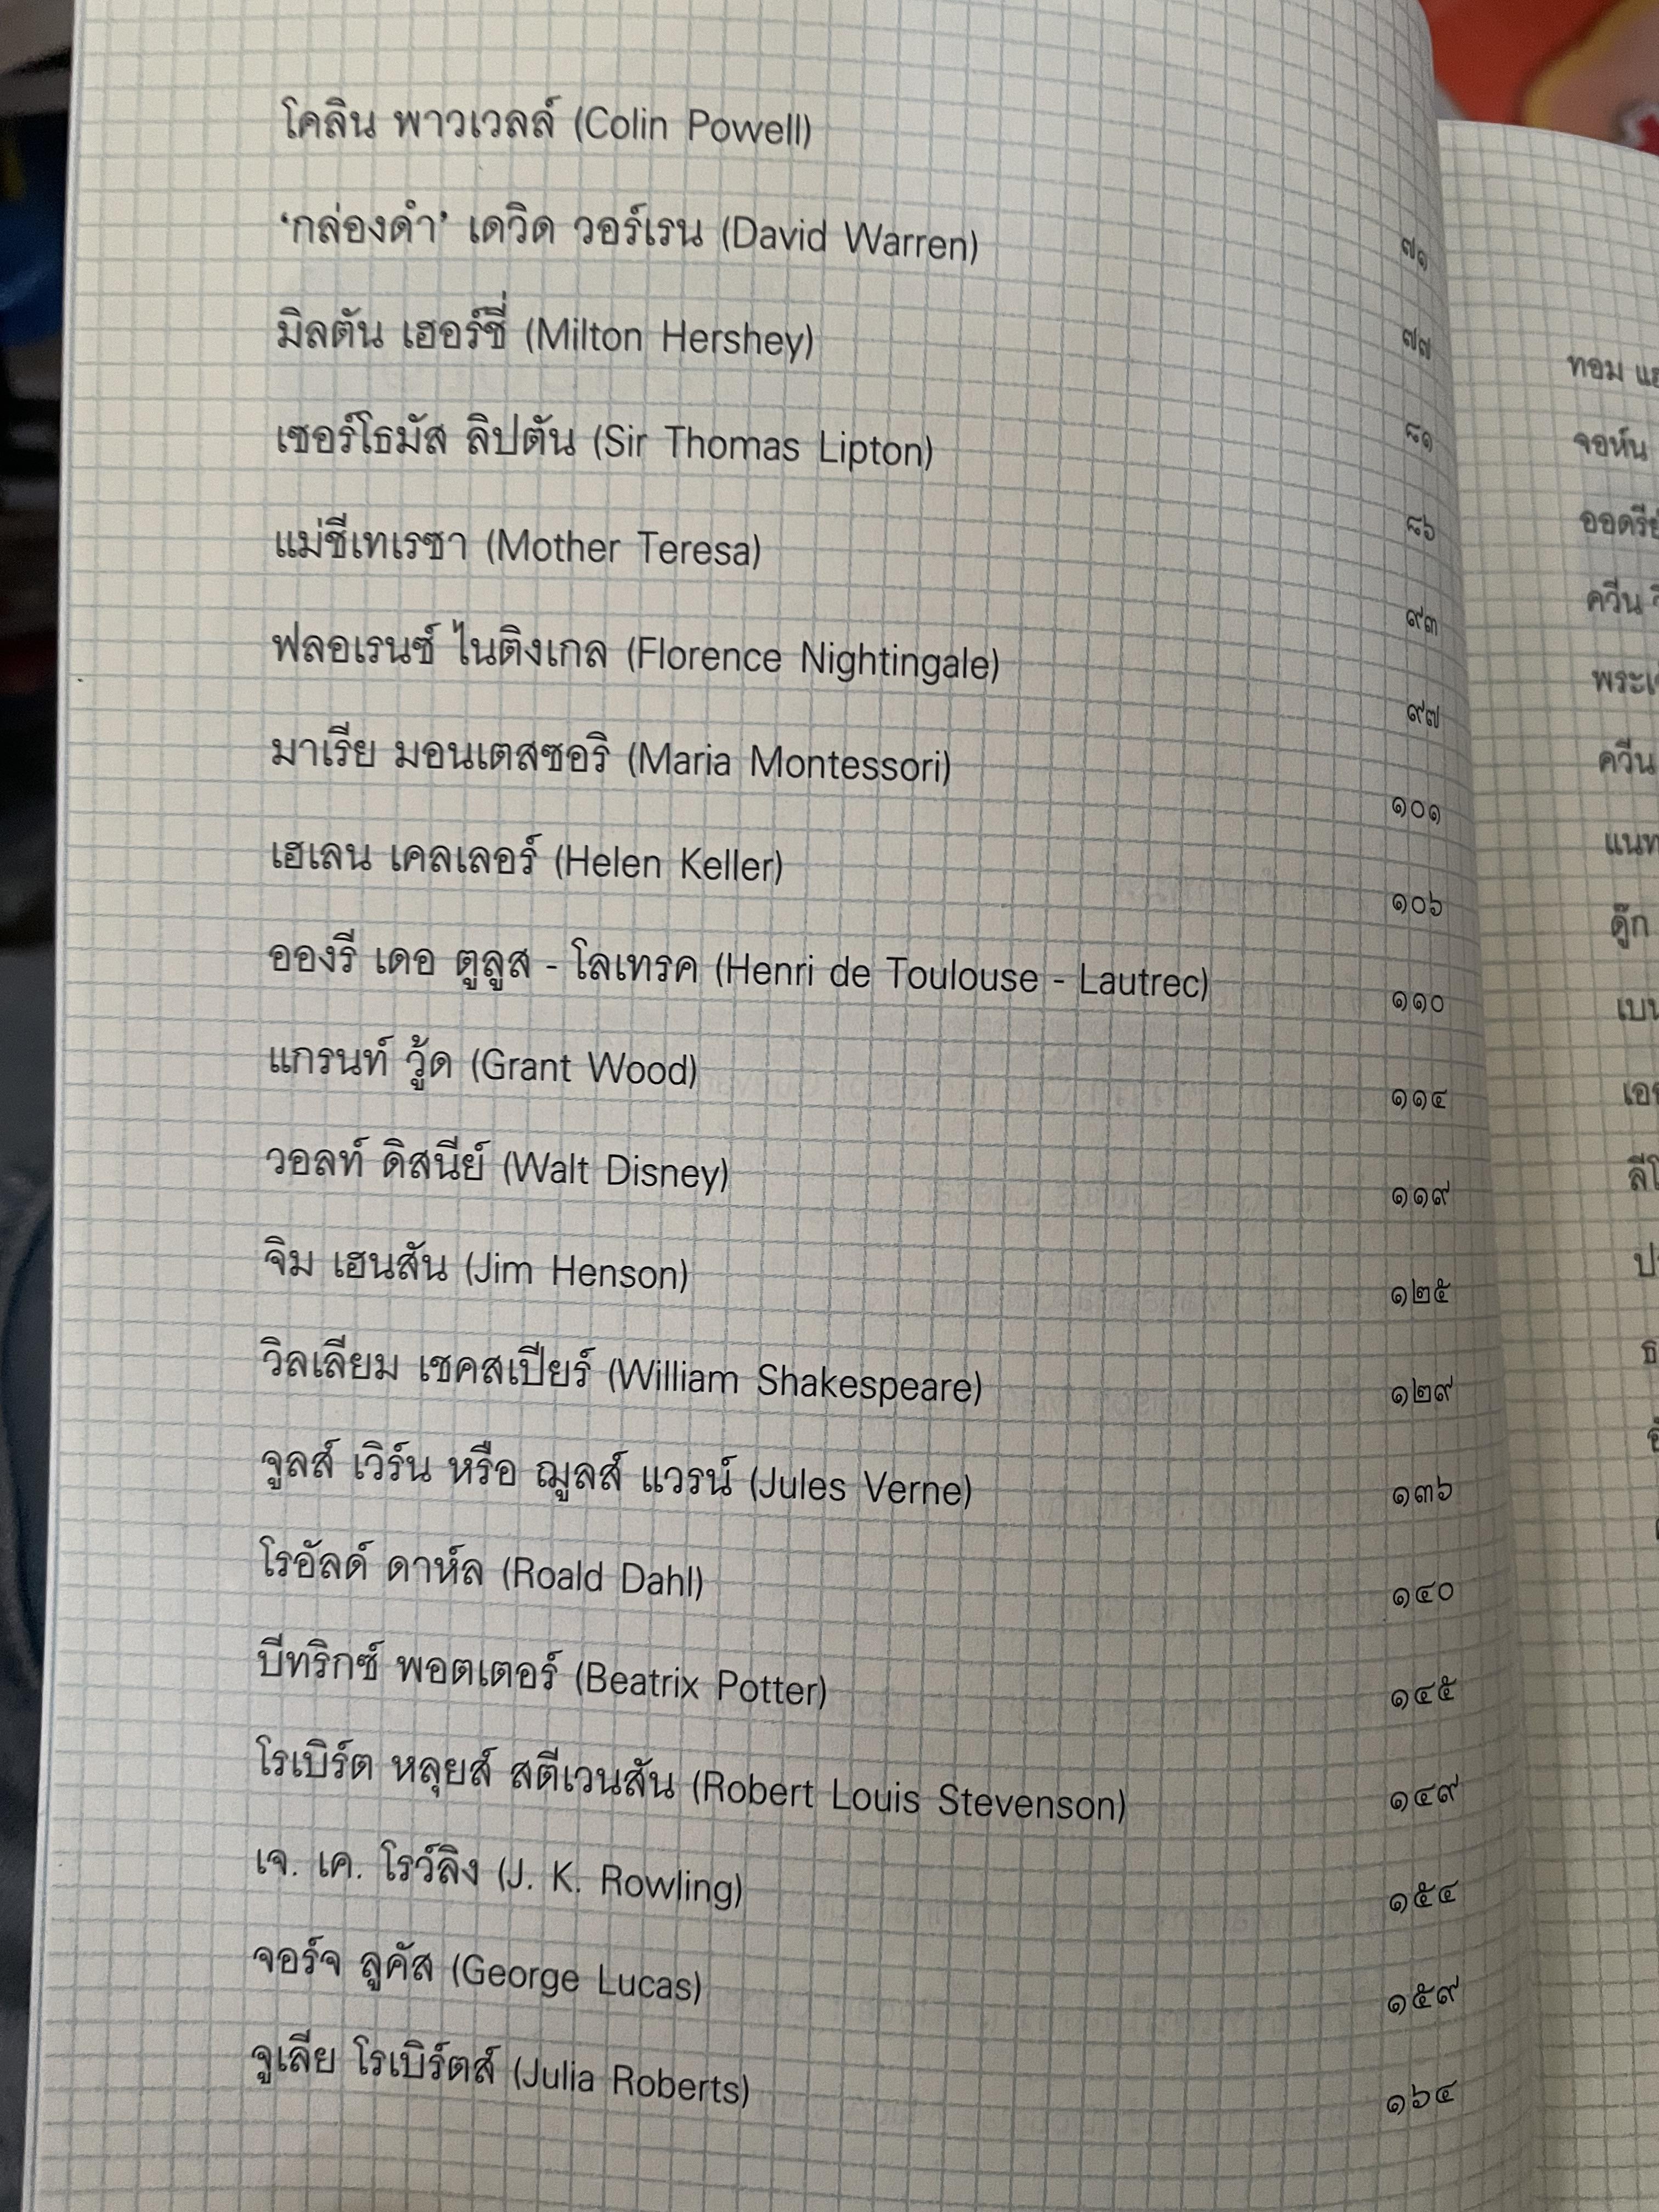 โคลิน พาวเวลล์ (Colin Powell) ๗๑
‘กล่องดำ’ เดวิด วอร์เรน (David Warren) ๗๗
มิลตัน เฮอร์ชี่ (Milton Hershey) ๘๑
เซอร์โธมัส ลิปตัน (Sir Thomas Lipton) ๘๖
แม่ชีเทเรซา (Mother Teresa) ๙๓
ฟลอเรนซ์ ไนติงเกล (Florence Nightingale) ๙๗
มาเรีย มอนเตสซอริ (Maria Montessori) ๑๐๑
เฮเลน เคลเลอร์ (Helen Keller) ๑๐๖
อองรี เดอ ตูลูส - โลเทรค (Henri de Toulouse - Lautrec) ๑๑๐
แกรนท์ วู้ด (Grant Wood) ๑๑๔
วอลท์ ดิสนีย์ (Walt Disney) ๑๑๙
จิม เฮนสัน (Jim Henson) ๑๒๕
วิลเลียม เชคสเปียร์ (William Shakespeare) ๑๒๙
จูลส์ เวิร์น หรือ ฌูลส์ แวรน์ (Jules Verne) ๑๓๖
โรอัลด์ ดาห์ล (Roald Dahl) ๑๔๐
บีทริกซ์ พอตเตอร์ (Beatrix Potter) ๑๔๕
โรเบิร์ต หลุยส์ สตีเวนสัน (Robert Louis Stevenson) ๑๔๙
เจ. เค. โรว์ลิง (J. K. Rowling) ๑๕๔
จอร์จ ลูคัส (George Lucas) ๑๕๙
จูเลีย โรเบิร์ตส์ (Julia Roberts) ๑๖๔
ทอม
จอห์น
ควีน
ควีน